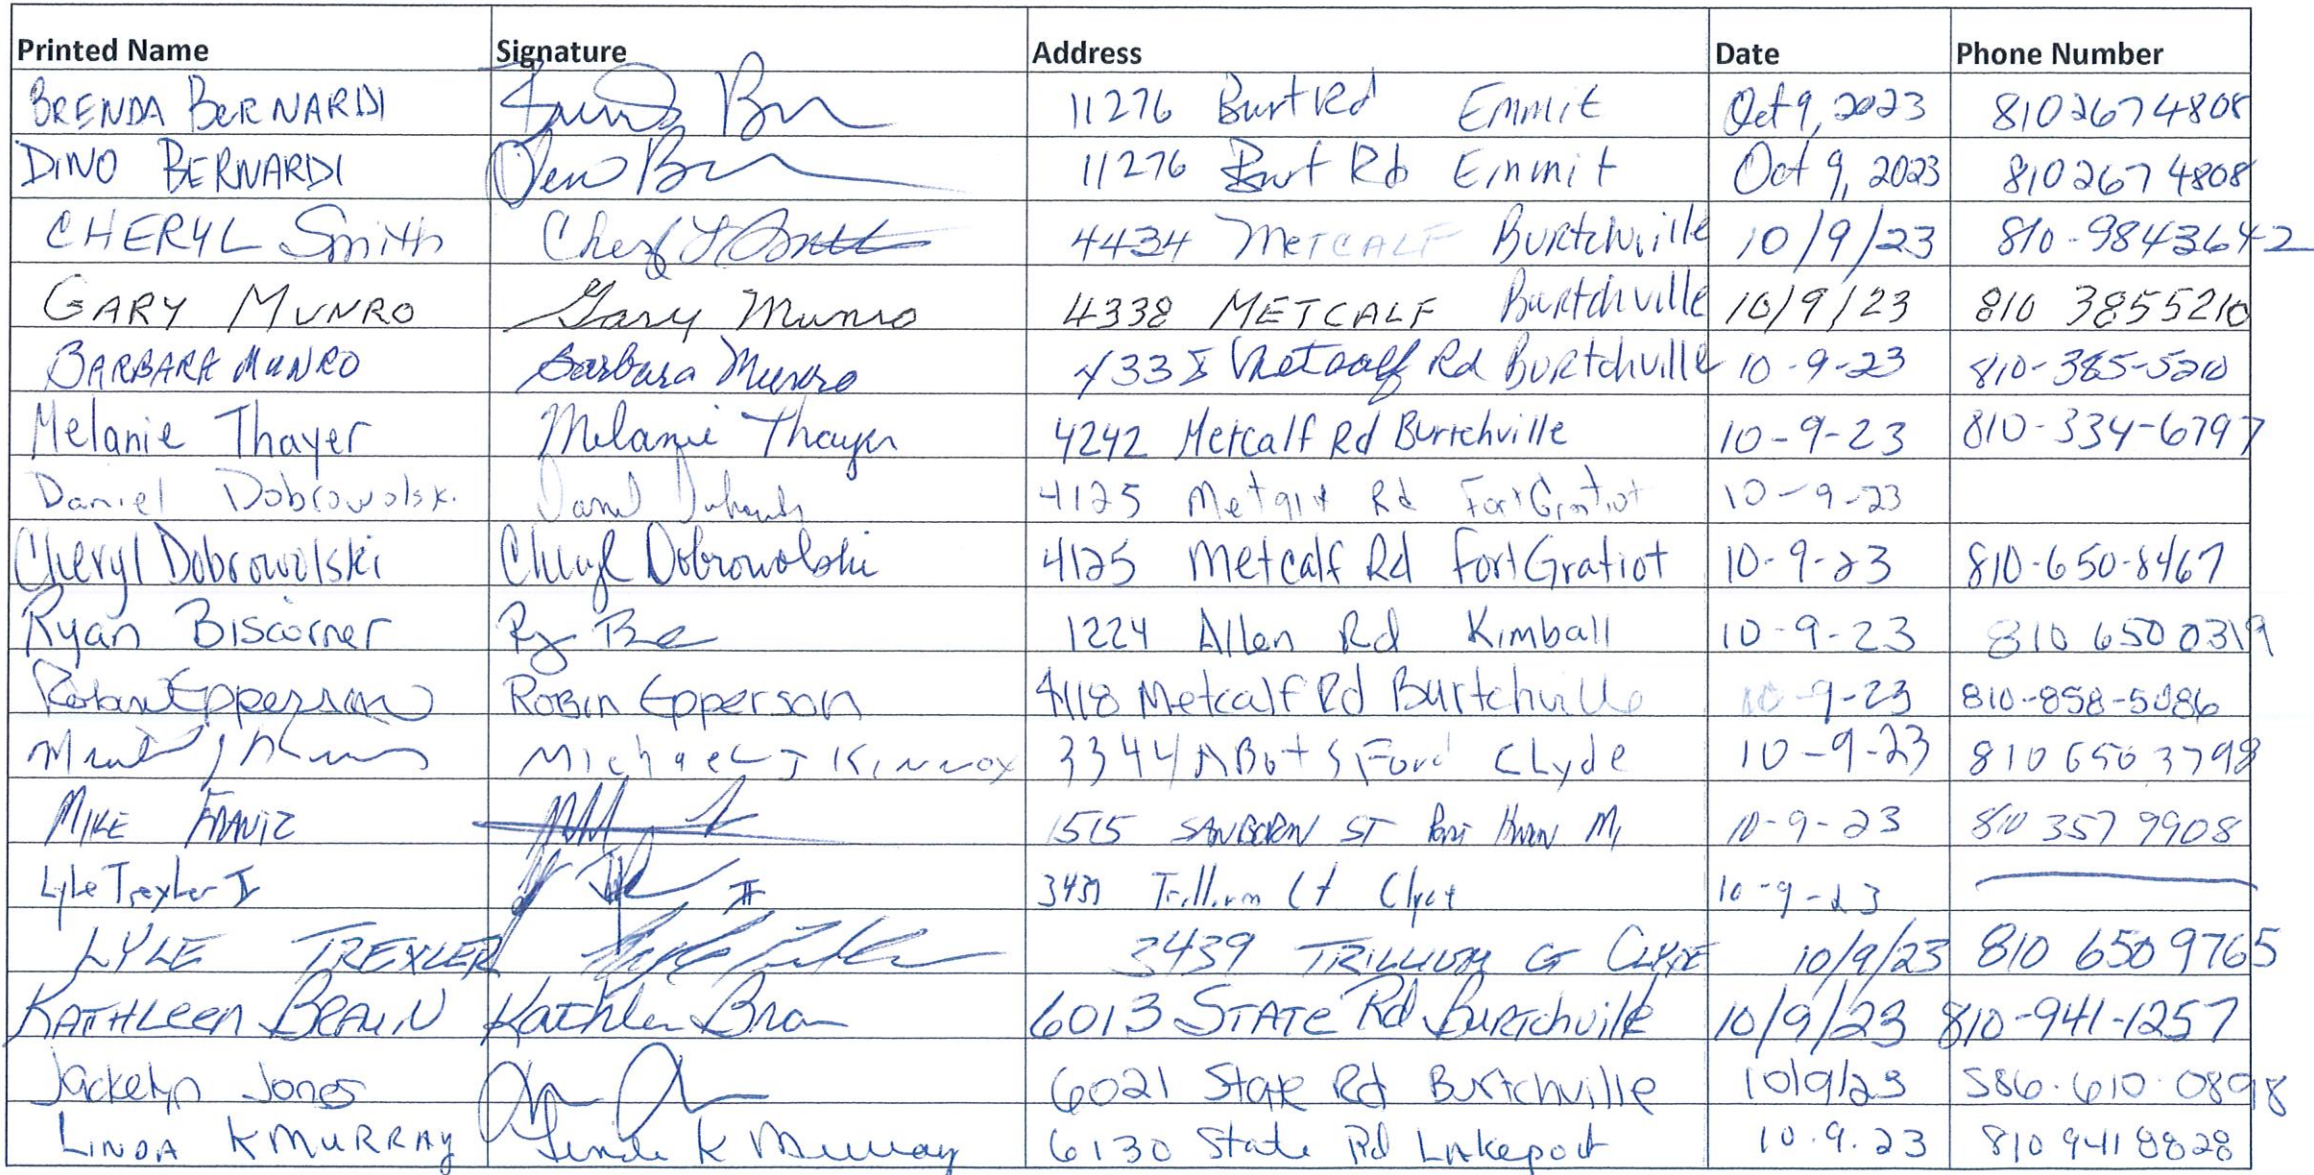 Printed Name Signature Address Date Phone Number
BRENDA BERNARDI 11276 Burt Rd Emmit Oct 9, 2023 8102674808
DINO BERNARDI Dino 11276 Burt Rd Emmit Oct 9, 2023 8102674808
CHERYL Smith Cheryl 4434 METCALF Burtchville 10/9/23 810-9843642
GARY MUNRO Gary Munro 4338 METCALF Burtchville 10/9/23 810 3855210
BARBARA MUNRO Barbara Munro Metcalf Rd Burtchville 10-9-23 810-385-5210
Melanie Thayer Melanie Thayer 4242 Metcalf Rd Burtchville 10-9-23 810-334-6797
Daniel Dobrowolski 4125 Rd Fort Gratiot 10-9-23
Cheryl Dobrowolski Cheryl Dobrowolski 4125 Metcalf Rd Fort Gratiot 10-9-23 810-650-8467
Ryan Biscorner 1224 Allen Rd Kimball 10-9-23 810 650 0319
Epperson Robin Epperson 4118 Metcalf Rd Burtchville 10-9-23 810-858-5086
Michael J Kinnox 3344 Clyde 10-9-23 810 650 3798
MIKE FRANTZ 1515 SANBORN ST Port Huron MI 10-9-23 810 357 9908
Lyle Trexler II II 3439 Trillium Ct Clyde 10-9-23
LYLE TREXLER 3439 TRILLIUM CT CLYDE 10/9/23 810 650 9765
KATHLEEN BRAUN Kathleen 6013 STATE Rd Burtchville 10/9/23 810-941-1257
Jackelyn Jones 6021 State Rd Burtchville 10/9/23 586.610.0898
LINDA K MURRAY Linda K Murray 6130 State Rd Lakeport 10.9.23 810 941 8828